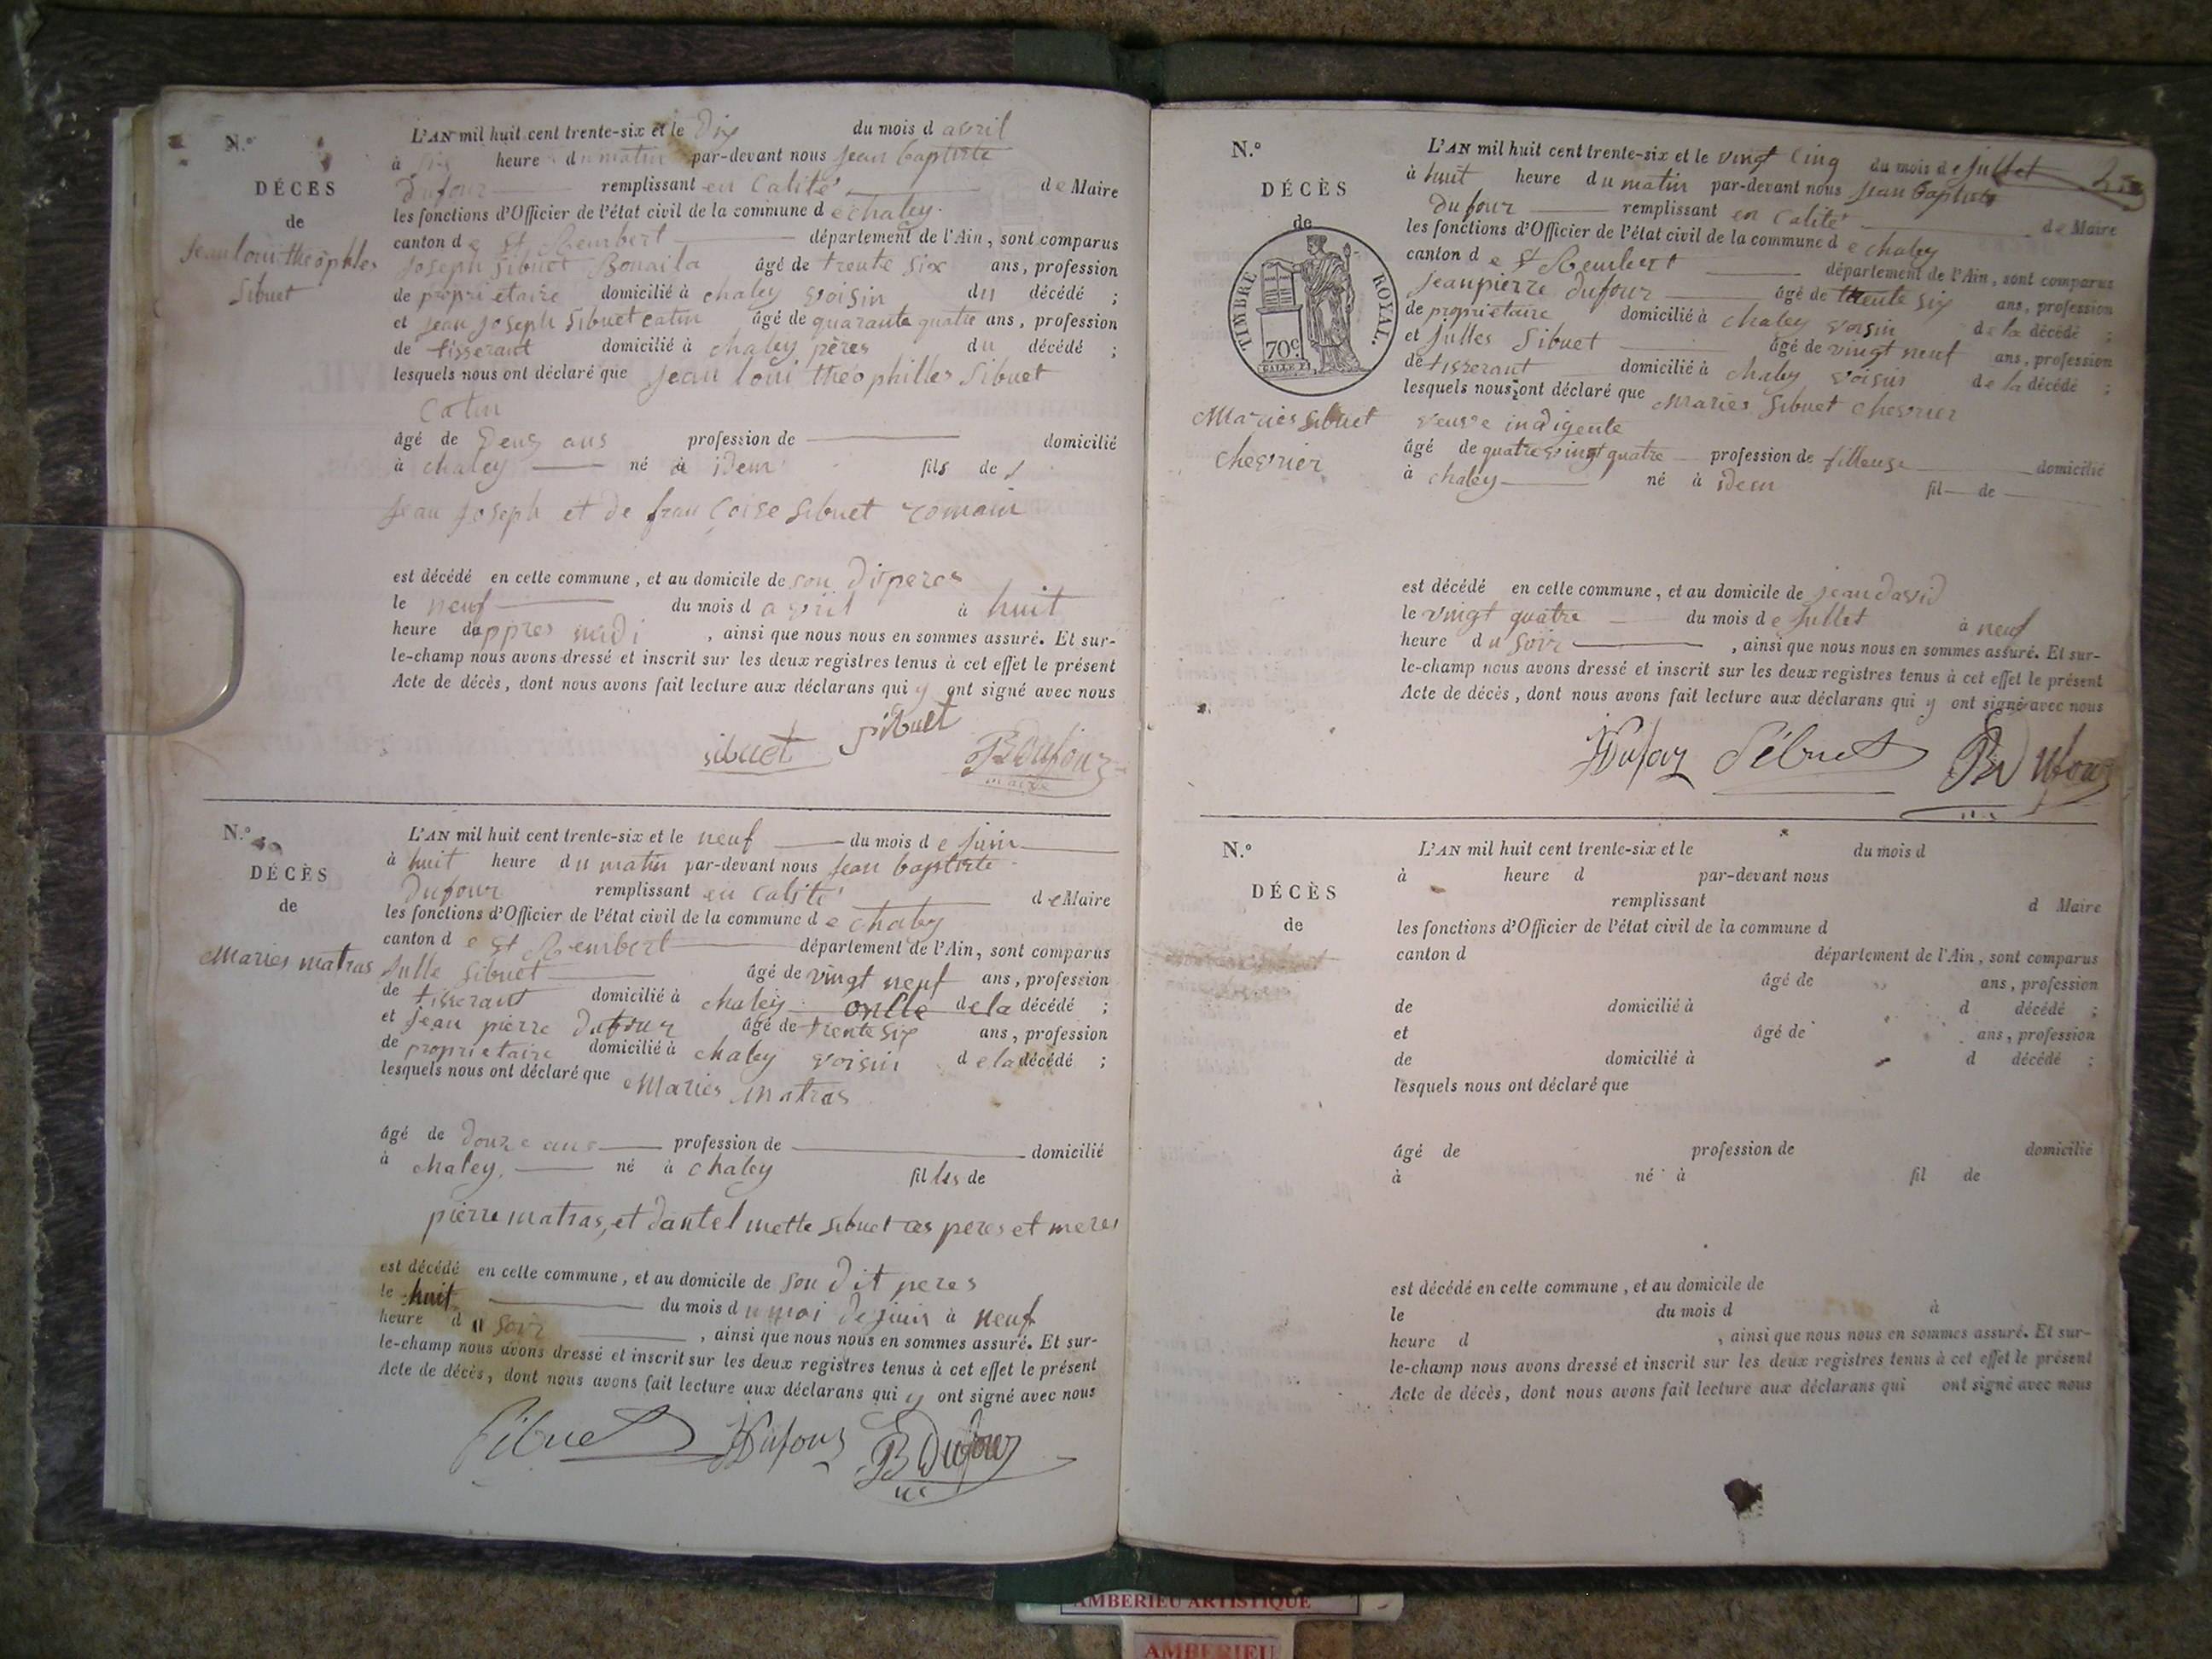 N.º
DÉCÈS
de
Jean loui théophles
Sibuet
L'AN mil huit cent trente-six et le dix du mois d avril
à heure du matin par-devant nous jean baptiste
Dufour remplissant en calité de Maire
les fonctions d'Officier de l'état civil de la commune de chaley.
canton de St Rembert département de l'Ain, sont comparus
Joseph Sibuet Bonaila âgé de trente six ans, profession
de proprietaire domicilié à chaley voisin du décédé ;
et jean joseph Sibuet catin âgé de quarante quatre ans, profession
de tisserant domicilié à chaley pères du décédé ;
lesquels nous ont déclaré que jean loui théophilles Sibuet
Catin
âgé de Deux ans profession de domicilié
à chaley né à idem fils de
jean joseph et de françoise Sibuet romain
est décédé en cette commune, et au domicile de son di peres
le neuf du mois d avril à huit
heure dappres midi, ainsi que nous nous en sommes assuré. Et sur-
le-champ nous avons dressé et inscrit sur les deux registres tenus à cet effet le présent
Acte de décès, dont nous avons fait lecture aux déclarans qui y ont signé avec nous
sibuet Sibuet BDufour
maire
N.º
DÉCÈS
de
Maries matras
L'AN mil huit cent trente-six et le neuf du mois de juin
à huit heure du matin par-devant nous jean baptiste
Dufour remplissant en calité de Maire
les fonctions d'Officier de l'état civil de la commune de chaley
canton de St Rembert département de l'Ain, sont comparus
Julle Sibuet âgé de vingt neuf ans, profession
de tisserant domicilié à chaley onlle dela décédé ;
et jean pierre Dufour âgé de trente six ans, profession
de proprietaire domicilié à chaley voisin de la décédé ;
lesquels nous ont déclaré que Maries matras
âgé de douze ans profession de domicilié
à chaley, né à chaley filles de
pierre matras, et dantel mette sibuet ces peres et meres
est décédé en cette commune, et au domicile de son dit peres
le huit du mois du moi de juin à neuf
heure du soir, ainsi que nous nous en sommes assuré. Et sur-
le-champ nous avons dressé et inscrit sur les deux registres tenus à cet effet le présent
Acte de décès, dont nous avons fait lecture aux déclarans qui y ont signé avec nous
Sibuet JPDufour BDufour
N.º
DÉCÈS
de
TIMBRE ROYAL.
70c.
Maries sibuet
chevrier
L'AN mil huit cent trente-six et le vingt cinq du mois de jullet
à huit heure du matin par-devant nous jean baptiste
Dufour remplissant en calité de Maire
les fonctions d'Officier de l'état civil de la commune de chaley
canton de St Rembert département de l'Ain, sont comparus
jeanpierre dufour âgé de trente six ans, profession
de proprietaire domicilié à chaley voisin de la décédé ;
et julles Sibuet âgé de vingt neuf ans, profession
de tisserant domicilié à chaley voisin de la décédé ;
lesquels nous ont déclaré que Maries Sibuet chevrier
veuve indigente
âgé de quatre vingt quatre profession de filleuse domicilié
à chaley né à idem fil de
est décédé en cette commune, et au domicile de jean david
le vingt quatre du mois de jullet à neuf
heure du soir, ainsi que nous nous en sommes assuré. Et sur-
le-champ nous avons dressé et inscrit sur les deux registres tenus à cet effet le présent
Acte de décès, dont nous avons fait lecture aux déclarans qui y ont signé avec nous
JPDufour Sibuet BDufour
N.º
DÉCÈS
de
L'AN mil huit cent trente-six et le du mois d
à heure d par-devant nous
remplissant d Maire
les fonctions d'Officier de l'état civil de la commune d
canton d département de l'Ain, sont comparus
âgé de ans, profession
de domicilié à d décédé ;
et âgé de ans, profession
de domicilié à d décédé ;
lesquels nous ont déclaré que
âgé de profession de domicilié
à né à fil de
est décédé en cette commune, et au domicile de
le du mois d à
heure d , ainsi que nous nous en sommes assuré. Et sur-
le-champ nous avons dressé et inscrit sur les deux registres tenus à cet effet le présent
Acte de décès, dont nous avons fait lecture aux déclarans qui ont signé avec nous
AMBERIEU ARTISTIQUE
AMBERIEU